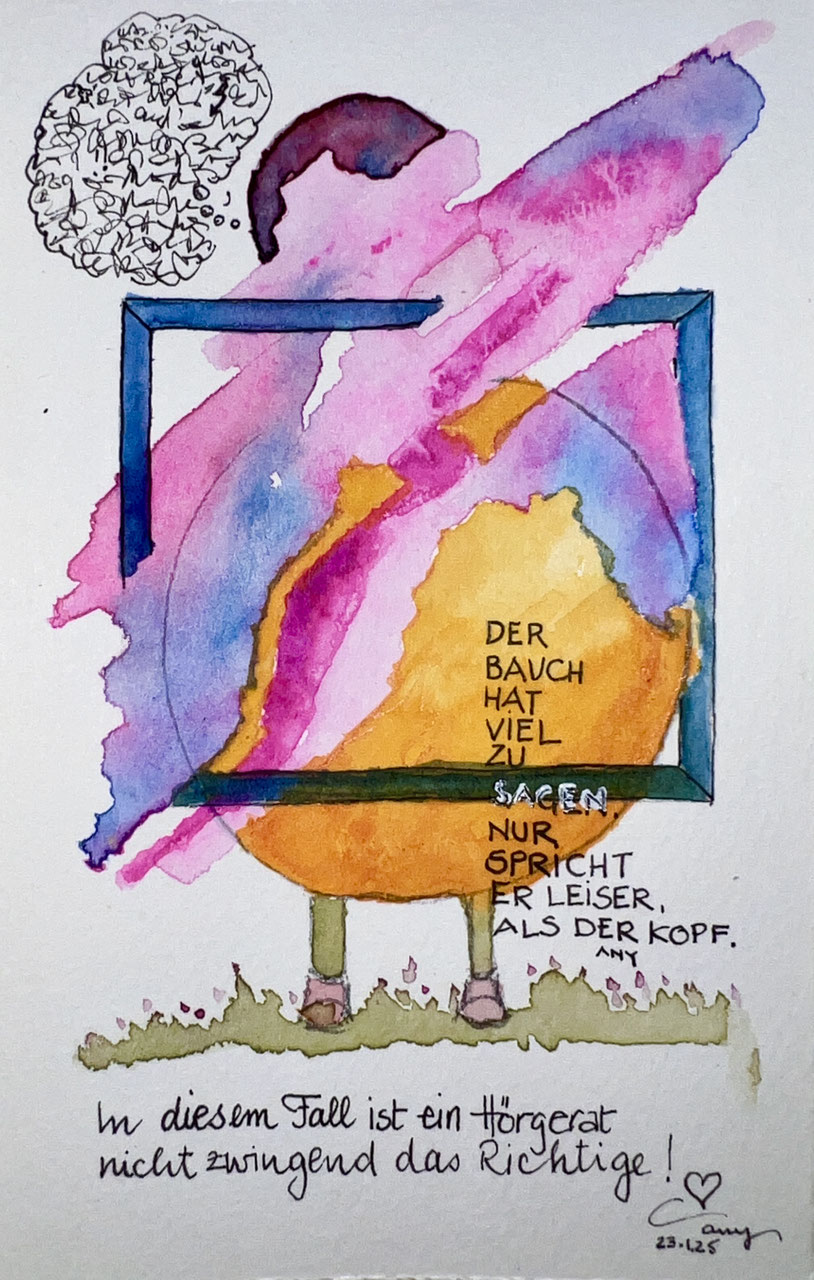 DER
BAUCH
HAT
VIEL
ZU
SAGEN.
NUR
SPRICHT
ER LEISER,
ALS DER KOPF.
ANY
In diesem Fall ist ein Hörgerat
nicht zwingend das Richtige!
Cany
23.1.25